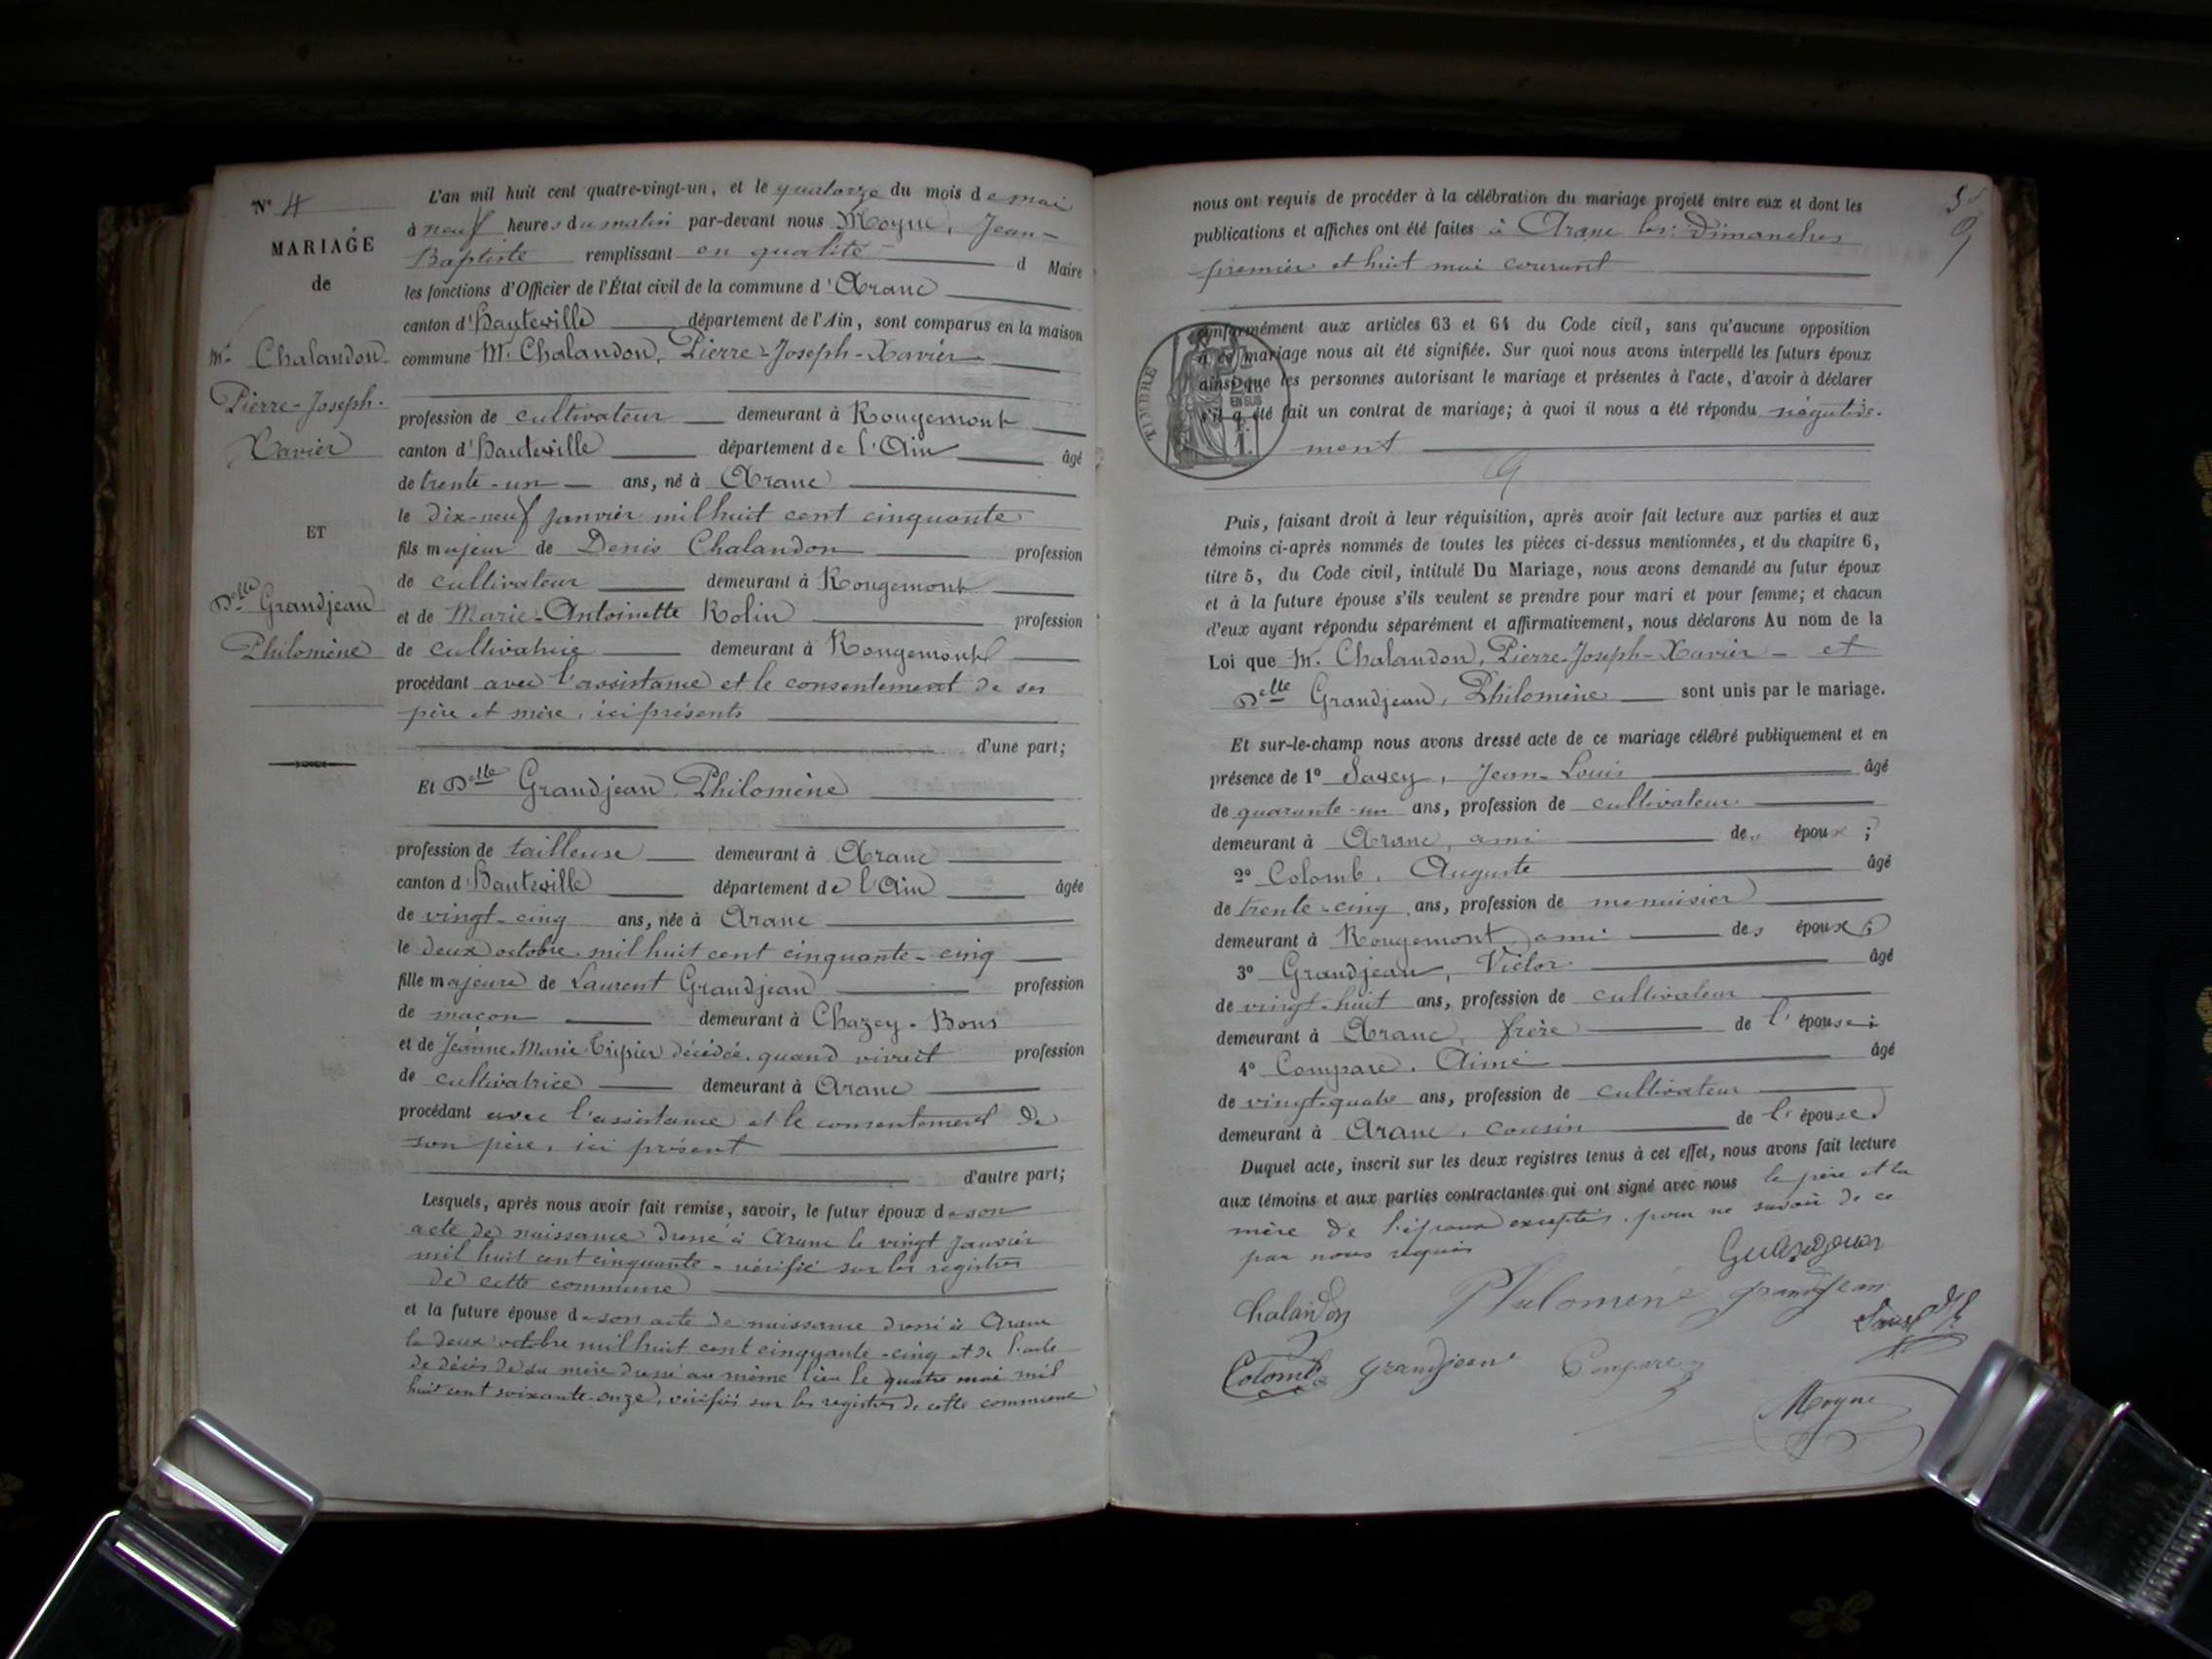 N° 4
MARIAGE
de
Mr. Chalandon
Pierre-Joseph-
Xavier
ET
Delle Grandjean
Philomène
L'an mil huit cent quatre-vingt-un, et le quatorze du mois de mai
à neuf heures du matin par-devant nous Moyne, Jean-
Baptiste remplissant en qualité d Maire
les fonctions d'Officier de l'État civil de la commune d'Aranc
canton d'Hauteville département de l'Ain, sont comparus en la maison
commune M. Chalandon, Pierre-Joseph-Xavier
profession de cultivateur demeurant à Rougemont
canton d'Hauteville département de l'Ain âgé
de trente-un ans, né à Aranc
le dix-neuf janvier mil huit cent cinquante
fils majeur de Denis Chalandon profession
de cultivateur demeurant à Rougemont
et de Marie-Antoinette Rolin profession
de cultivatrice demeurant à Rougemont
procédant avec l'assistance et le consentement de ses
père et mère, ici présents
d'une part;
Et Delle Grandjean Philomène
profession de tailleuse demeurant à Aranc
canton d'Hauteville département de l'Ain âgée
de vingt-cinq ans, née à Aranc
le deux octobre mil huit cent cinquante-cinq
fille majeure de Laurent Grandjean profession
de maçon demeurant à Chazey-Bons
et de Jeanne-Marie Tripier décédée quand vivait profession
de cultivatrice demeurant à Aranc
procédant avec l'assistance et le consentement de
son père, ici présent
d'autre part;
Lesquels, après nous avoir fait remise, savoir, le futur époux de son
acte de naissance dressé à Aranc le vingt janvier
mil huit cent cinquante - vérifié sur les registres
de cette commune
et la future épouse de son acte de naissance dressé à Aranc
le deux octobre mil huit cent cinquante-cinq et de l'acte
de décès de sa mère dressé au même lieu le quatre mai mil
huit cent soixante-onze, vérifiés sur les registres de cette commune
nous ont requis de procéder à la célébration du mariage projeté entre eux et dont les
publications et affiches ont été faites à Aranc les Dimanches
premier et huit mai courant
conformément aux articles 63 et 64 du Code civil, sans qu'aucune opposition
à ce mariage nous ait été signifiée. Sur quoi nous avons interpellé les futurs époux
ainsi que les personnes autorisant le mariage et présentes à l'acte, d'avoir à déclarer
s'il a été fait un contrat de mariage; à quoi il nous a été répondu négative-
ment
TIMBRE
EN SUS
Puis, faisant droit à leur réquisition, après avoir fait lecture aux parties et aux
témoins ci-après nommés de toutes les pièces ci-dessus mentionnées, et du chapitre 6,
titre 5, du Code civil, intitulé Du Mariage, nous avons demandé au futur époux
et à la future épouse s'ils veulent se prendre pour mari et pour femme; et chacun
d'eux ayant répondu séparément et affirmativement, nous déclarons Au nom de la
Loi que M. Chalandon, Pierre-Joseph-Xavier - et
Delle Grandjean, Philomène sont unis par le mariage.
Et sur-le-champ nous avons dressé acte de ce mariage célébré publiquement et en
présence de 1° Savey, Jean-Louis âgé
de quarante-un ans, profession de cultivateur
demeurant à Aranc, ami des époux;
2° Colomb, Auguste âgé
de trente-cinq ans, profession de menuisier
demeurant à Rougemont, ami des époux;
3° Grandjean, Victor âgé
de vingt-huit ans, profession de cultivateur
demeurant à Aranc, frère de l'épouse;
4° Compare, Aimé âgé
de vingt-quatre ans, profession de cultivateur
demeurant à Aranc, cousin de l'épouse
Duquel acte, inscrit sur les deux registres tenus à cet effet, nous avons fait lecture
aux témoins et aux parties contractantes qui ont signé avec nous le père et la
mère de l'époux exceptés, pour ne savoir de ce
par nous requis
Chalandon Philomène grandjean
Colomb grandjean Compare
Moyne